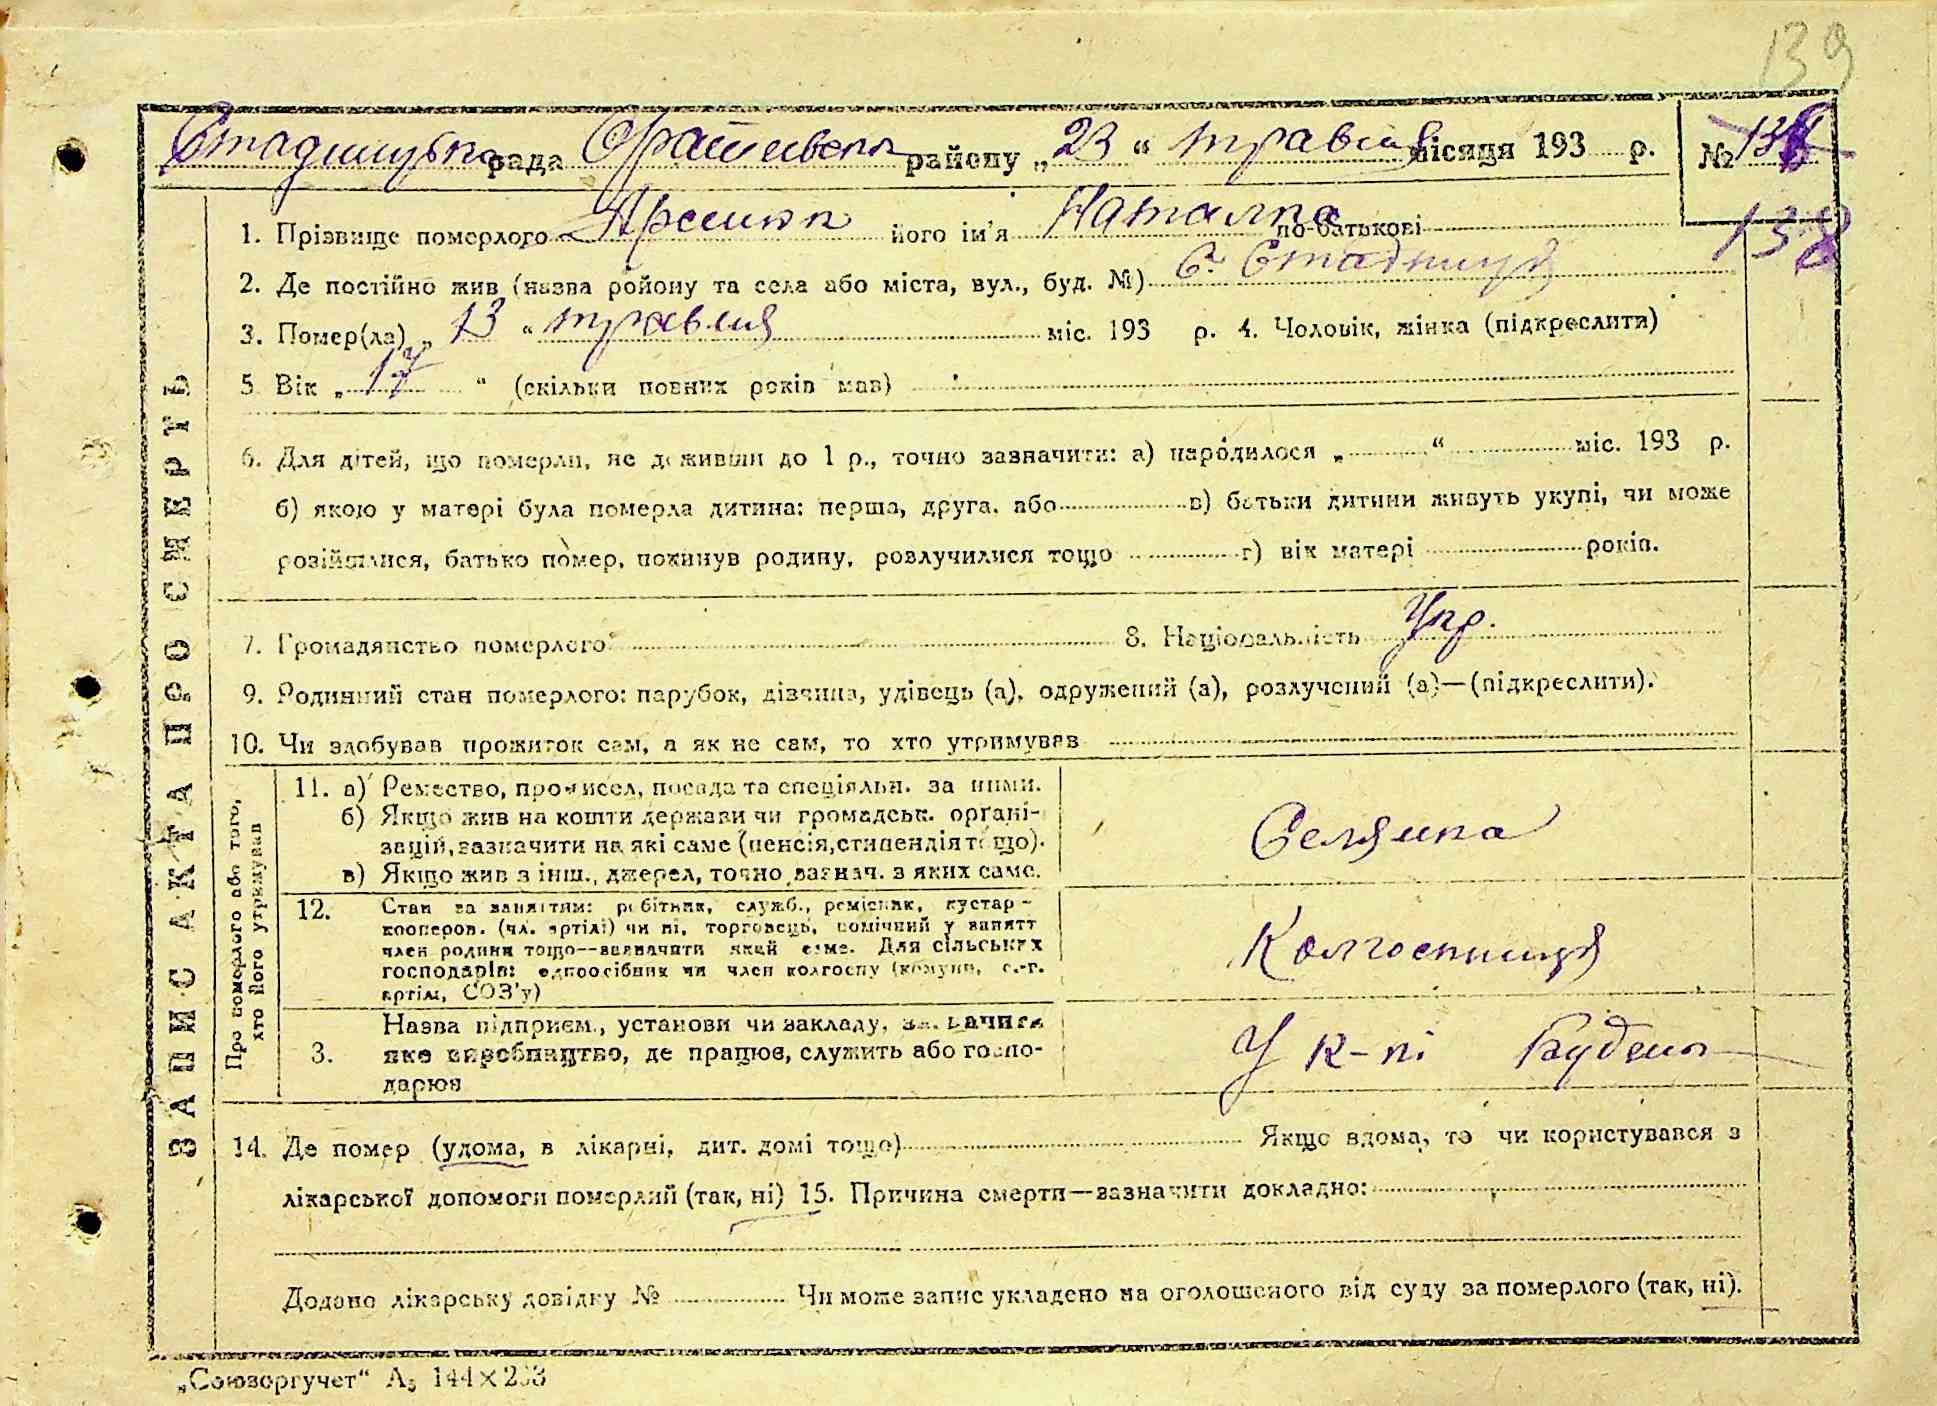 139
Стадницька рада Фастівськ району „23“ травня місяця 193 р. № 138
138
1. Прізвище померлого його ім'я Наталка по-батькові
2. Де постійно жив (назва ройону та села або міста, вул., буд. №) С. Стадниця
3. Помер(ла) „13“ травня міс. 193 р. 4. Чоловік, жінка (підкреслити)
5 Вік „17“ (скільки повних років мав)
6. Для дітей, що померли, не доживши до 1 р., точно зазначити: а) народилося „ “ міс. 193 р.
б) якою у матері була померла дитина: перша, друга, або в) батьки дитини живуть укупі, чи може
розійшлися, батько помер, покинув родину, розлучилися тощо г) вік матері років.
7. Громадянство померлого 8. Національність Укр.
9. Родинний стан померлого: парубок, дівчина, удівець (а), одружений (а), розлучений (а)—(підкреслити).
10. Чи здобував прожиток сам, а як не сам, то хто утримував
ЗАПИС АКТА ПРО СМЕРТЬ
Про померлого або того,
хто його утримував
11. а) Ремество, промисел, посада та спеціяльн. за ними.
б) Якщо жив на кошти держави чи громадськ. органі-
зацій, зазначити на які саме (пенсія, стипендія тощо).
в) Якщо жив з інш., джерел, точно зазнач. з яких саме.
Селянка
12. Стан за заняттям: робітник, служб., ремісник, кустар-
кооперов. (чл. артілі) чи ні, торговець, помічний у занятт
член родини тощо—зазначити який саме. Для сільських
господарів: одноосібник чи член колгоспу (комуни, с.-г.
артілі, СОЗ'у)
Колгоспниця
3. Назва підприєм., установи чи закладу, зазначити
яке виробництво, де працює, служить або госпо-
дарює
У к-пі Будень
14. Де помер (удома, в лікарні, дит. домі тощо) Якщо вдома, то чи користувався з
лікарської допомоги померлий (так, ні) 15. Причина смерти—зазначити докладно:
Додано лікарську довідку № Чи може запис укладено на оголошеного від суду за померлого (так, ні).
„Союзоргучет“ А5 144×203